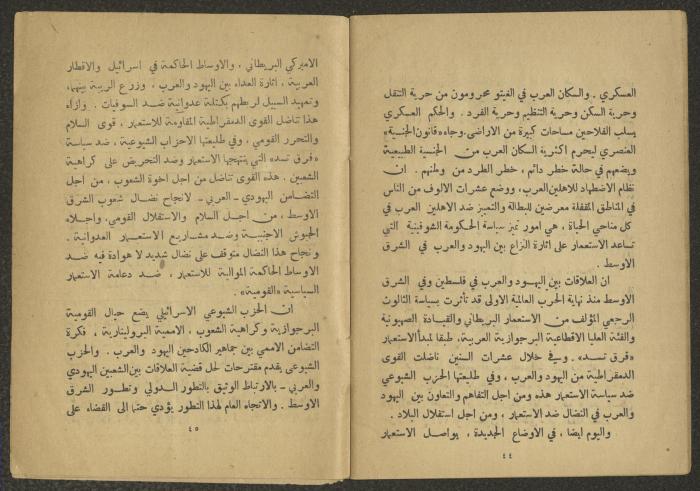 العسكري. والسكان العرب في الغيتو محرومون من حرية التنقل
وحرية السكن وحرية التنظيم وحرية الفرد. والحكم العسكري
يسلب الفلاحين مساحات كبيرة من الاراضي. وجاء «قانون الجنسية»
العنصري ليحرم اكثرية السكان العرب من الجنسية الطبيعية
ويضعهم في حالة خطر دائم، خطر الطرد من وطنهم. ان
نظام الاضطهاد للاهلين العرب، ووضع عشرات الالوف من الناس
في المناطق المقفلة معرضين للبطالة والتمييز ضد الاهلين العرب في
كل مناحي الحياة، هي امور تميز سياسة الحكومة الشوفينية التي
تساعد الاستعمار على اثارة النزاع بين اليهود والعرب في الشرق
الاوسط.
ان العلاقات بين اليهود والعرب في فلسطين وفي الشرق
الاوسط منذ نهاية الحرب العالمية الاولى قد تأثرت بسياسة الثالوث
الرجعي المؤلف من الاستعمار البريطاني والقيادة الصهيونية
والفئة العليا الاقطاعية البرجوازية العربية، طبقا لمبدأ الاستعمار
«فرق تسد». وفي خلال عشرات السنين ناضلت القوى
الدمقراطية من اليهود والعرب، وفي طليعتها الحزب الشيوعي
ضد سياسة الاستعمار هذه ومن اجل التفاهم والتعاون بين اليهود
والعرب في النضال ضد الاستعمار، ومن اجل استقلال البلاد.
واليوم ايضا، في الاوضاع الجديدة، يواصل الاستعمار
٤٤
الاميركي البريطاني، والاوساط الحاكمة في اسرائيل والاقطار
العربية، اثارة العداء بين اليهود والعرب، وزرع الريبة بينهما،
وتمهيد السبيل لربطهم بكتلة عدوانية ضد السوفيات. وازاء
هذا تناضل القوى الدمقراطية المقاومة للاستعمار، قوى السلام
والتحرر القومي، وفي طليعتها الاحزاب الشيوعية، ضد سياسة
«فرق تسد» التي ينتهجها الاستعمار وضد التحريض على كراهية
الشعبين. هذه القوى تناضل من اجل اخوة الشعوب، من اجل
التضامن اليهودي - العربي - لانجاح نضال شعوب الشرق
الاوسط، من اجل السلام والاستقلال القومي، واجلاء
الجيوش الاجنبية وضد مشاريع الاستعمار العدوانية.
ونجاح هذا النضال متوقف على نضال شديد لا هوادة فيه ضد
الاوساط الحاكمة الموالية للاستعمار، ضد دعامة الاستعمار
السياسية «القومية».
ان الحزب الشيوعي الاسرائيلي يضع حيال القومية
البرجوازية وكراهية الشعوب، الاممية البروليتارية، فكرة
التضامن الاممي بين جماهير الكادحين اليهود والعرب. والحزب
الشيوعي يقدم مقترحات لحل قضية العلاقات بين الشعبين اليهودي
والعربي - بالارتباط الوثيق بالتطور الدولي وتطور الشرق
الاوسط. والاتجاه العام لهذا التطور يؤدي حتما الى القضاء على
٤٥